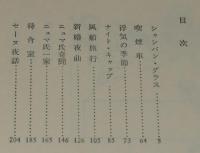 目次
シャンパン・グラス 5
喫煙車 64
浮気の季節 73
ナイト・キャップ 85
風船旅行 105
新婚夜曲 126
ニュマ氏奇問 146
ニュマ氏一家 165
待合室 185
セーヌ夜話 204